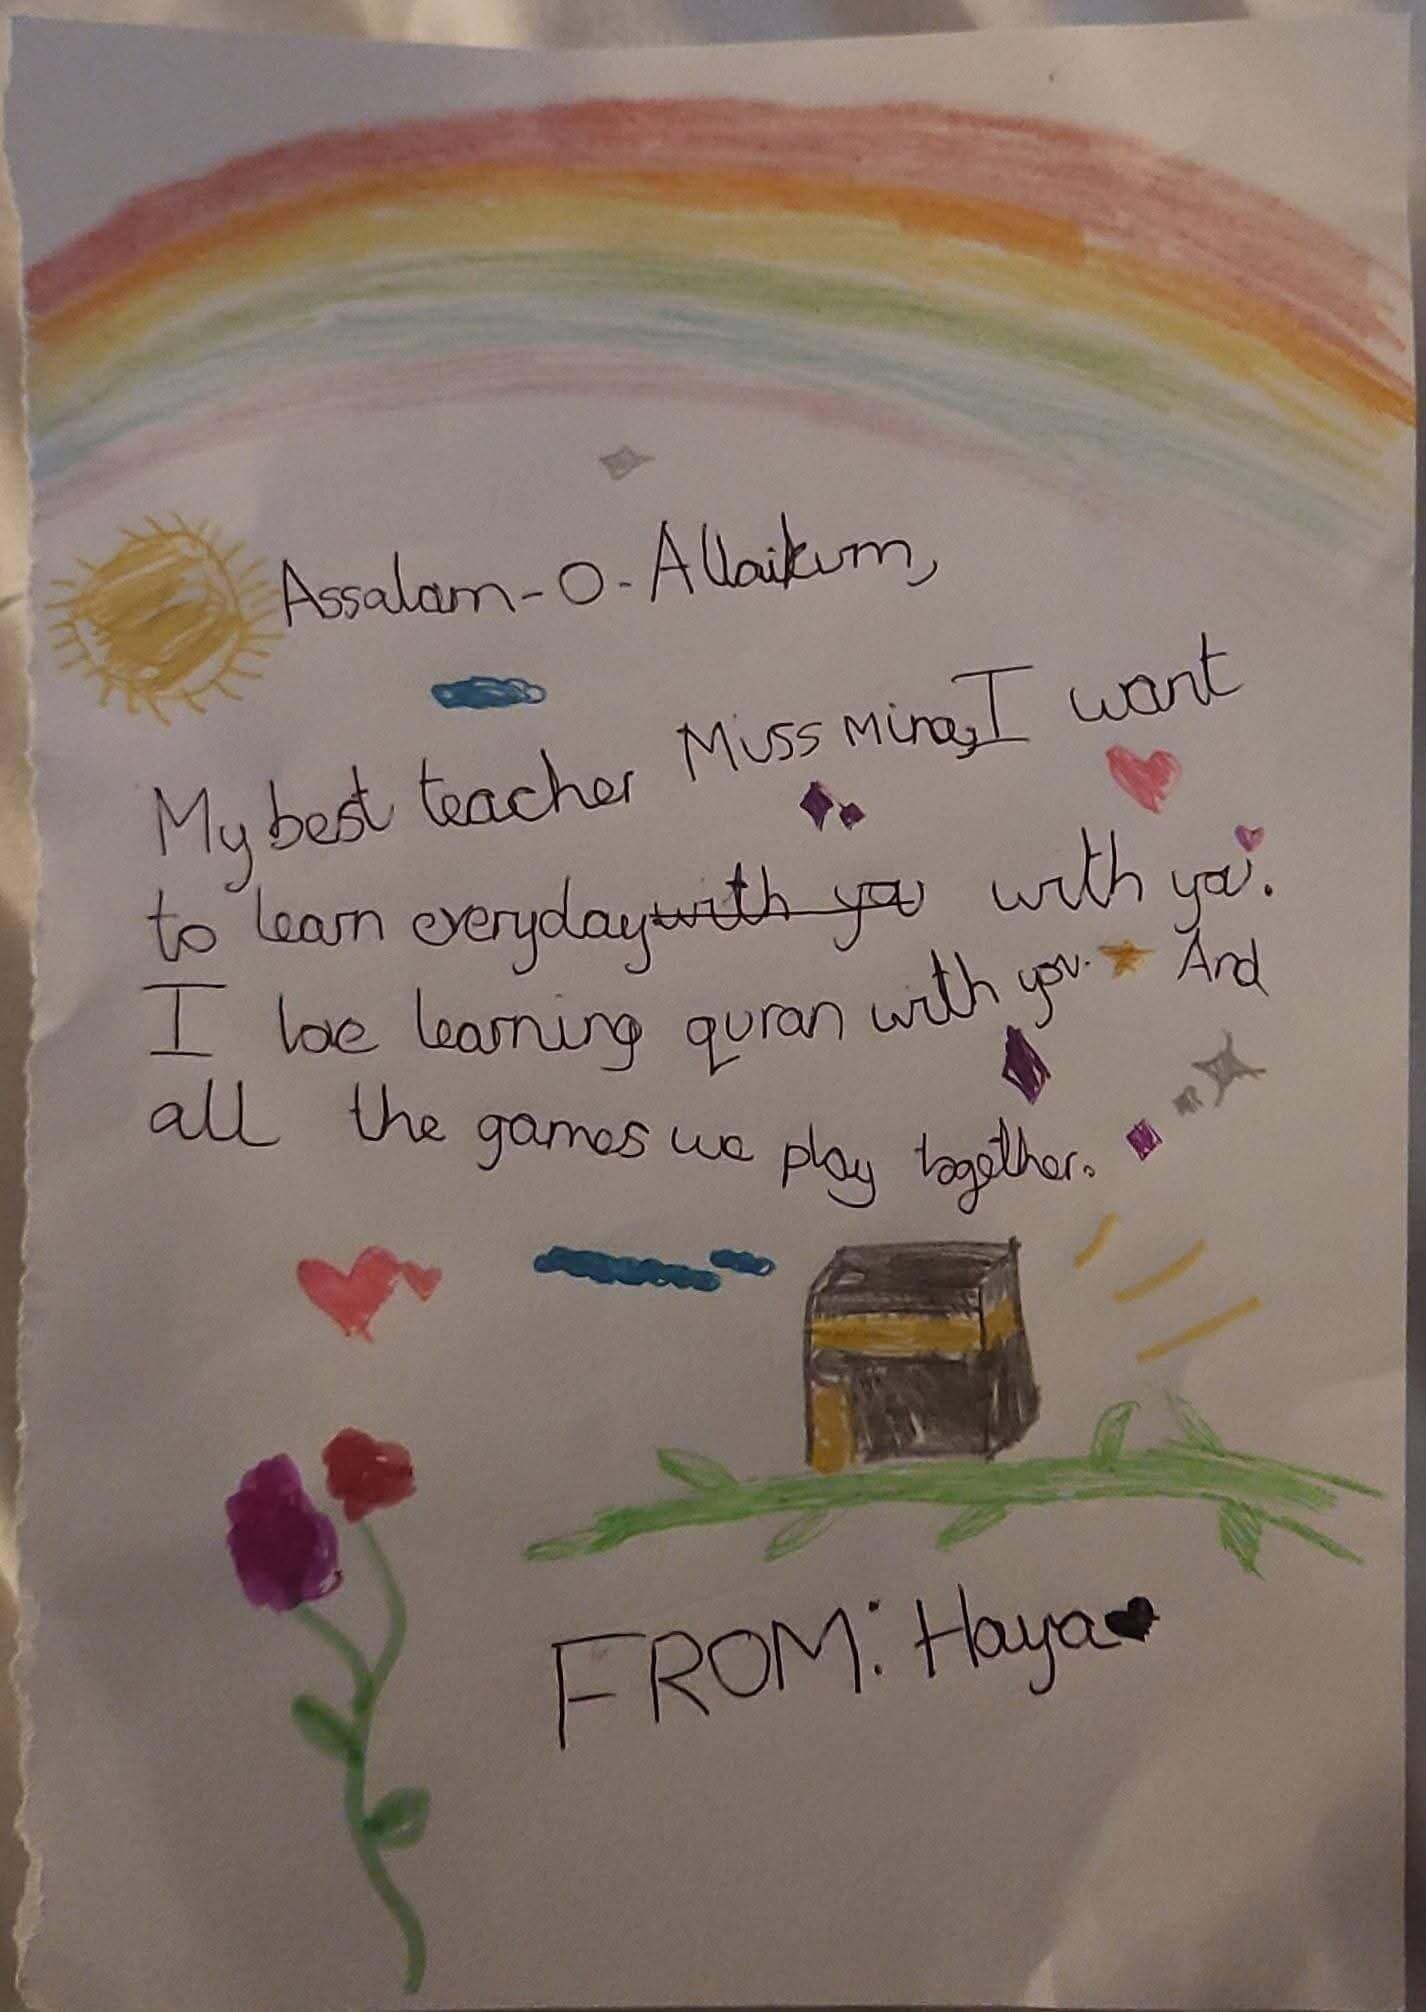 Assalam-O-Allaikum,
My best teacher Muss Mina, I want
to learn everyday with you with you.
I love learning quran with you. And
all the games we play together.
FROM: Haya